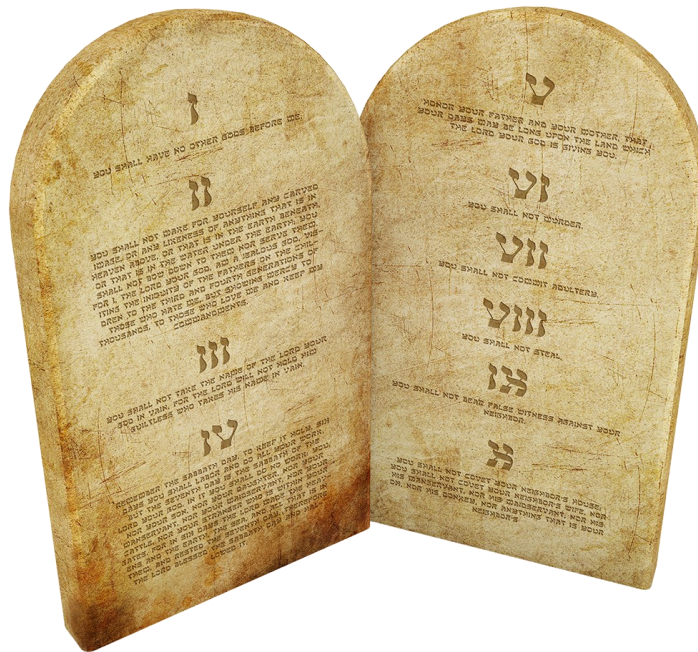 I
YOU SHALL HAVE NO OTHER GODS BEFORE ME.
II
YOU SHALL NOT MAKE FOR YOURSELF ANY CARVED
IMAGE, OR ANY LIKENESS OF ANYTHING THAT IS IN
HEAVEN ABOVE, OR THAT IS IN THE EARTH BENEATH,
OR THAT IS IN THE WATER UNDER THE EARTH. YOU
SHALL NOT BOW DOWN TO THEM NOR SERVE THEM.
FOR I, THE LORD YOUR GOD, AM A JEALOUS GOD, VIS-
ITING THE INIQUITY OF THE FATHERS ON THE CHIL-
DREN TO THE THIRD AND FOURTH GENERATIONS OF
THOSE WHO HATE ME, BUT SHOWING MERCY TO
THOUSANDS, TO THOSE WHO LOVE ME AND KEEP MY
COMMANDMENTS.
III
YOU SHALL NOT TAKE THE NAME OF THE LORD YOUR
GOD IN VAIN, FOR THE LORD WILL NOT HOLD HIM
GUILTLESS WHO TAKES HIS NAME IN VAIN.
IV
REMEMBER THE SABBATH DAY, TO KEEP IT HOLY. SIX
DAYS YOU SHALL LABOR AND DO ALL YOUR WORK,
BUT THE SEVENTH DAY IS THE SABBATH OF THE
LORD YOUR GOD. IN IT YOU SHALL DO NO WORK: YOU,
NOR YOUR SON, NOR YOUR DAUGHTER, NOR YOUR
MANSERVANT, NOR YOUR MAIDSERVANT, NOR YOUR
CATTLE, NOR YOUR STRANGER WHO IS WITHIN YOUR
GATES. FOR IN SIX DAYS THE LORD MADE THE HEAV-
ENS AND THE EARTH, THE SEA, AND ALL THAT IS IN
THEM, AND RESTED THE SEVENTH DAY. THEREFORE
THE LORD BLESSED THE SABBATH DAY AND HAL-
LOWED IT.
V
HONOR YOUR FATHER AND YOUR MOTHER, THAT
YOUR DAYS MAY BE LONG UPON THE LAND WHICH
THE LORD YOUR GOD IS GIVING YOU.
VI
YOU SHALL NOT MURDER.
VII
YOU SHALL NOT COMMIT ADULTERY.
VIII
YOU SHALL NOT STEAL.
IX
YOU SHALL NOT BEAR FALSE WITNESS AGAINST YOUR
NEIGHBOR.
X
YOU SHALL NOT COVET YOUR NEIGHBOR'S HOUSE;
YOU SHALL NOT COVET YOUR NEIGHBOR'S WIFE, NOR
HIS MANSERVANT, NOR HIS MAIDSERVANT, NOR HIS
OX, NOR HIS DONKEY, NOR ANYTHING THAT IS YOUR
NEIGHBOR'S